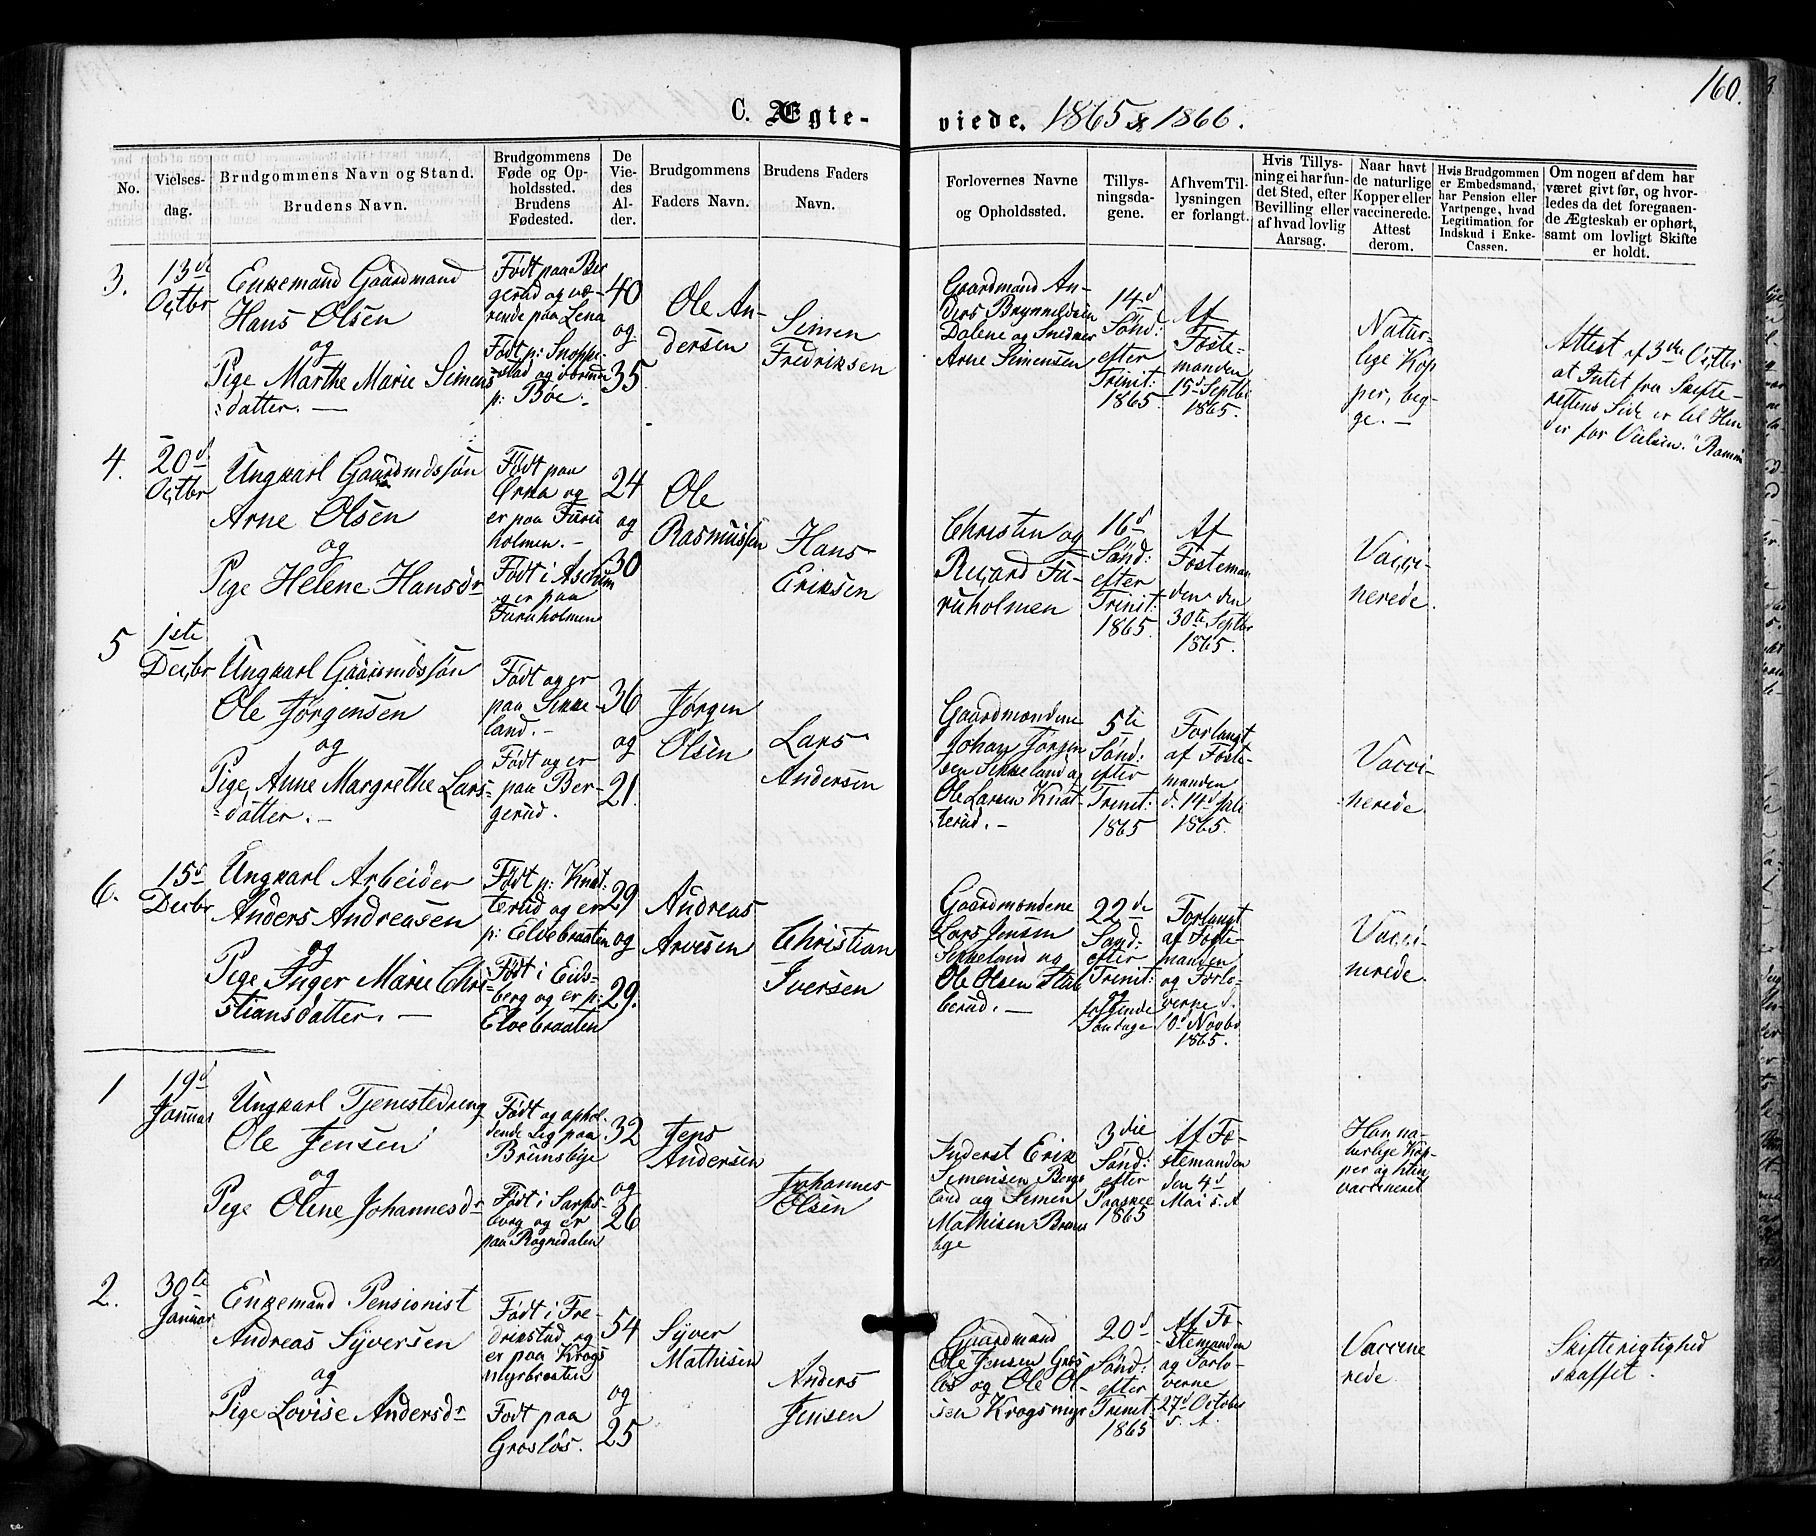 160.
C. Ægte- viede. 1865 & 1866.
No.
Vielses-
dag.
Brudgommens Navn og Stand.
Brudens Navn.
Brudgommens
Føde og Op-
holdssted.
Brudens
Fødested.
De
Vie-
des
Al-
der.
Brudgommens
Faders Navn.
Brudens Faders
Navn.
Forlovernes Navne
og Opholdssted.
Tillys-
ningsda-
gene.
Af hvem Til-
lysningen
er forlangt.
Hvis Tillys-
ning ei har fun-
det Sted, efter
Bevilling eller
af hvad lovlig
Aarsag.
Naar havt
de naturlige
Kopper eller
vaccinerede.
Attest
derom.
Hvis Brudgommen
er Embedsmand,
har Pension eller
Vartpenge, hvad
Legitimation for
Indskud i Enke-
Cassen.
Om nogen af dem har
været givt før, og hvor-
ledes da det foregaaen-
de Ægteskab er ophørt,
samt om lovligt Skifte
er holdt.
3.
13d
Octbr
Enkemand Gaardmand
Hans Olsen
og
Pige Marthe Marie Simens
datter. —
Født paa Ber
gerud og væ-
rende paa Lena
Født p: Snoppe-
stad og
p: Bøe.
40
og
35.
Ole An-
dersen
Simen
Fredriksen
Gaardmand An-
ders Brynnildsen
Dalene og
Arne Simensen
14d
Sønd:
efter
Trinit:
1865.
Af
Føste-
manden
15d Septbr
1865.
Natur-
lige Kop
per, beg-
ge. —
Attest af 3die Octbr
at Intet fra Skifte-
rettens Side er til Hin
der for Vielsen.
4.
20d
Octbr
Ungkarl Gaardmdssøn
Arne Olsen
og
Pige Helene Hansdr
Født paa
Ørka og
er paa Furu
holmen. —
Født i Askim
og er paa
Furuholmen
24
og
30
Ole
Rasmussen
Hans
Eriksen
Christen og
Ricard Fu-
ruholmen
16d
Sønd:
efter
Trinit:
1865.
Af
Føsteman
den den
30te Septbr
1865.
Vacci-
nerede.
5
1ste
Decbr
Ungkarl Gaardmdssøn
Ole Jørgensen
og
Pige Anne Margrethe Lars-
datter. —
Født og er
paa Sikke-
land. —
Født og er
paa Ber-
gerud.
36
og
21.
Jørgen
Olsen
Lars
Andersen
Gaardmændene
Johan Jørgen
sen Sikkeland og
Ole Larsen Knat-
terud. —
5te
Sønd:
efter
Trinit:
1865
Forlangt
af Føste-
manden
d. 14d Juli
1865.
Vacci-
nerede.
6.
15d
Decbr
Ungkarl Arbeider
Anders Andreasen
og
Pige Inger Marie Chri-
stiansdatter. —
Født p: Knat-
terud og er
p: Elvebraaten
Født i Eids-
berg og er p:
Elvebraaten
29
og
29.
Andreas
Arvesen
Christian
Iversen
Gaardmændene
Lars Jensen
Sikkeland og
Ole Olsen Stab
berud. —
22de
Sønd:
efter
Trinit:
og
følgende
Søndage
Forlangt
af Føste-
manden
og Forlo-
verne d.
10d Novbr
1865.
Vacci-
nerede.
1
19d
Januar
Ungkarl Tjenestedreng
Ole Jensen
og
Pige Oline Johannesdr
Født og ophol-
dende sig paa
Brunsbye
Født i Sarps-
borg og er
paa Rognedalen
32
og
26
Jens
Andersen
Johannes
Olsen
Inderst Erik
Simensen Bergs
land og Simen
Mathisen Bruns
bye
3die
Sønd:
efter
Paaske
1865
Af Fø-
stemanden
den 4d
Mai s. A
Han na-
turlige Kop-
per og hun
vaccineret
2.
30te
Januar
Enkemand Pensionist
Andreas Syversen
og
Pige Lovise Andersdr
Født i Fre-
drikstad og
er paa Krogs
myrbraaten
Født paa
Grosløs.
54
og
25
Syver
Mathisen
Anders
Jensen
Gaardmand
Ole Jensen Gros
løs og Ole Ol-
sen Krogsmyr
20d
Sønd:
efter
Trinit:
1865
Af Fø-
stemanden
og Forlo-
verne
27d October
s. A.
Vaccine
rede.
Skifterigtighed
skaffet.